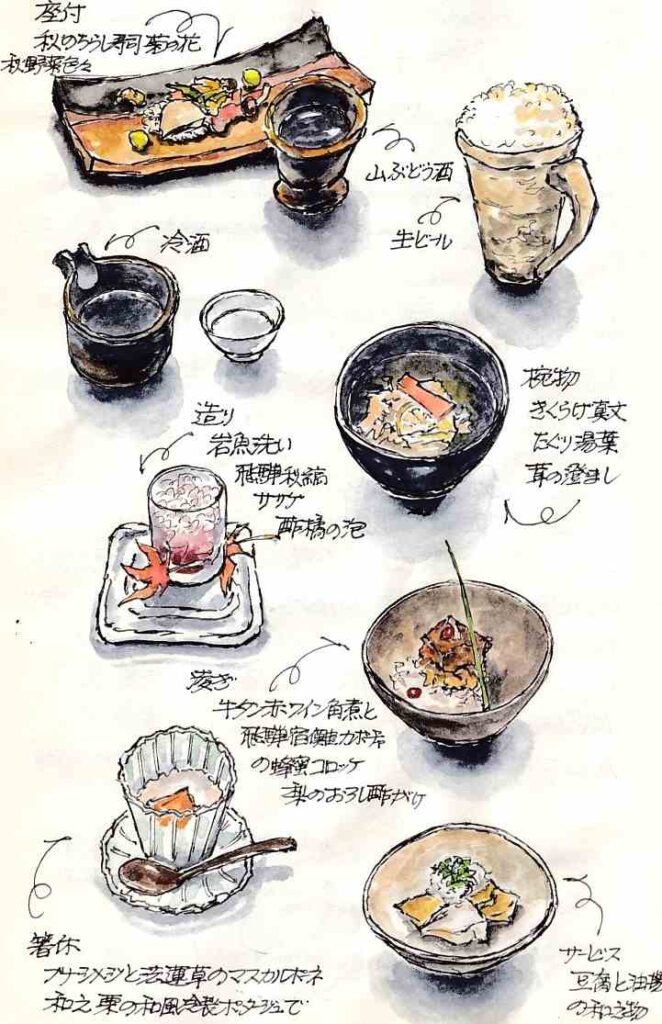 座付
秋のちらし寿司 菊の花
秋野菜色々
山ぶどう酒
生ビール
冷酒
椀物
きくらげ真丈
たぐり湯葉
茸の澄まし
造り
岩魚洗い
飛騨秋縞
ササゲ
酢橘の泡
凌ぎ
牛タン赤ワイン角煮と
飛騨宿儺カボチャ
の蜂蜜コロッケ
梨のおろし酢がけ
箸休
ブナシメジと菠薐草のマスカルポーネ
和え 栗の和風冷製ポタージュで
サービス
豆腐と油揚
の和え物